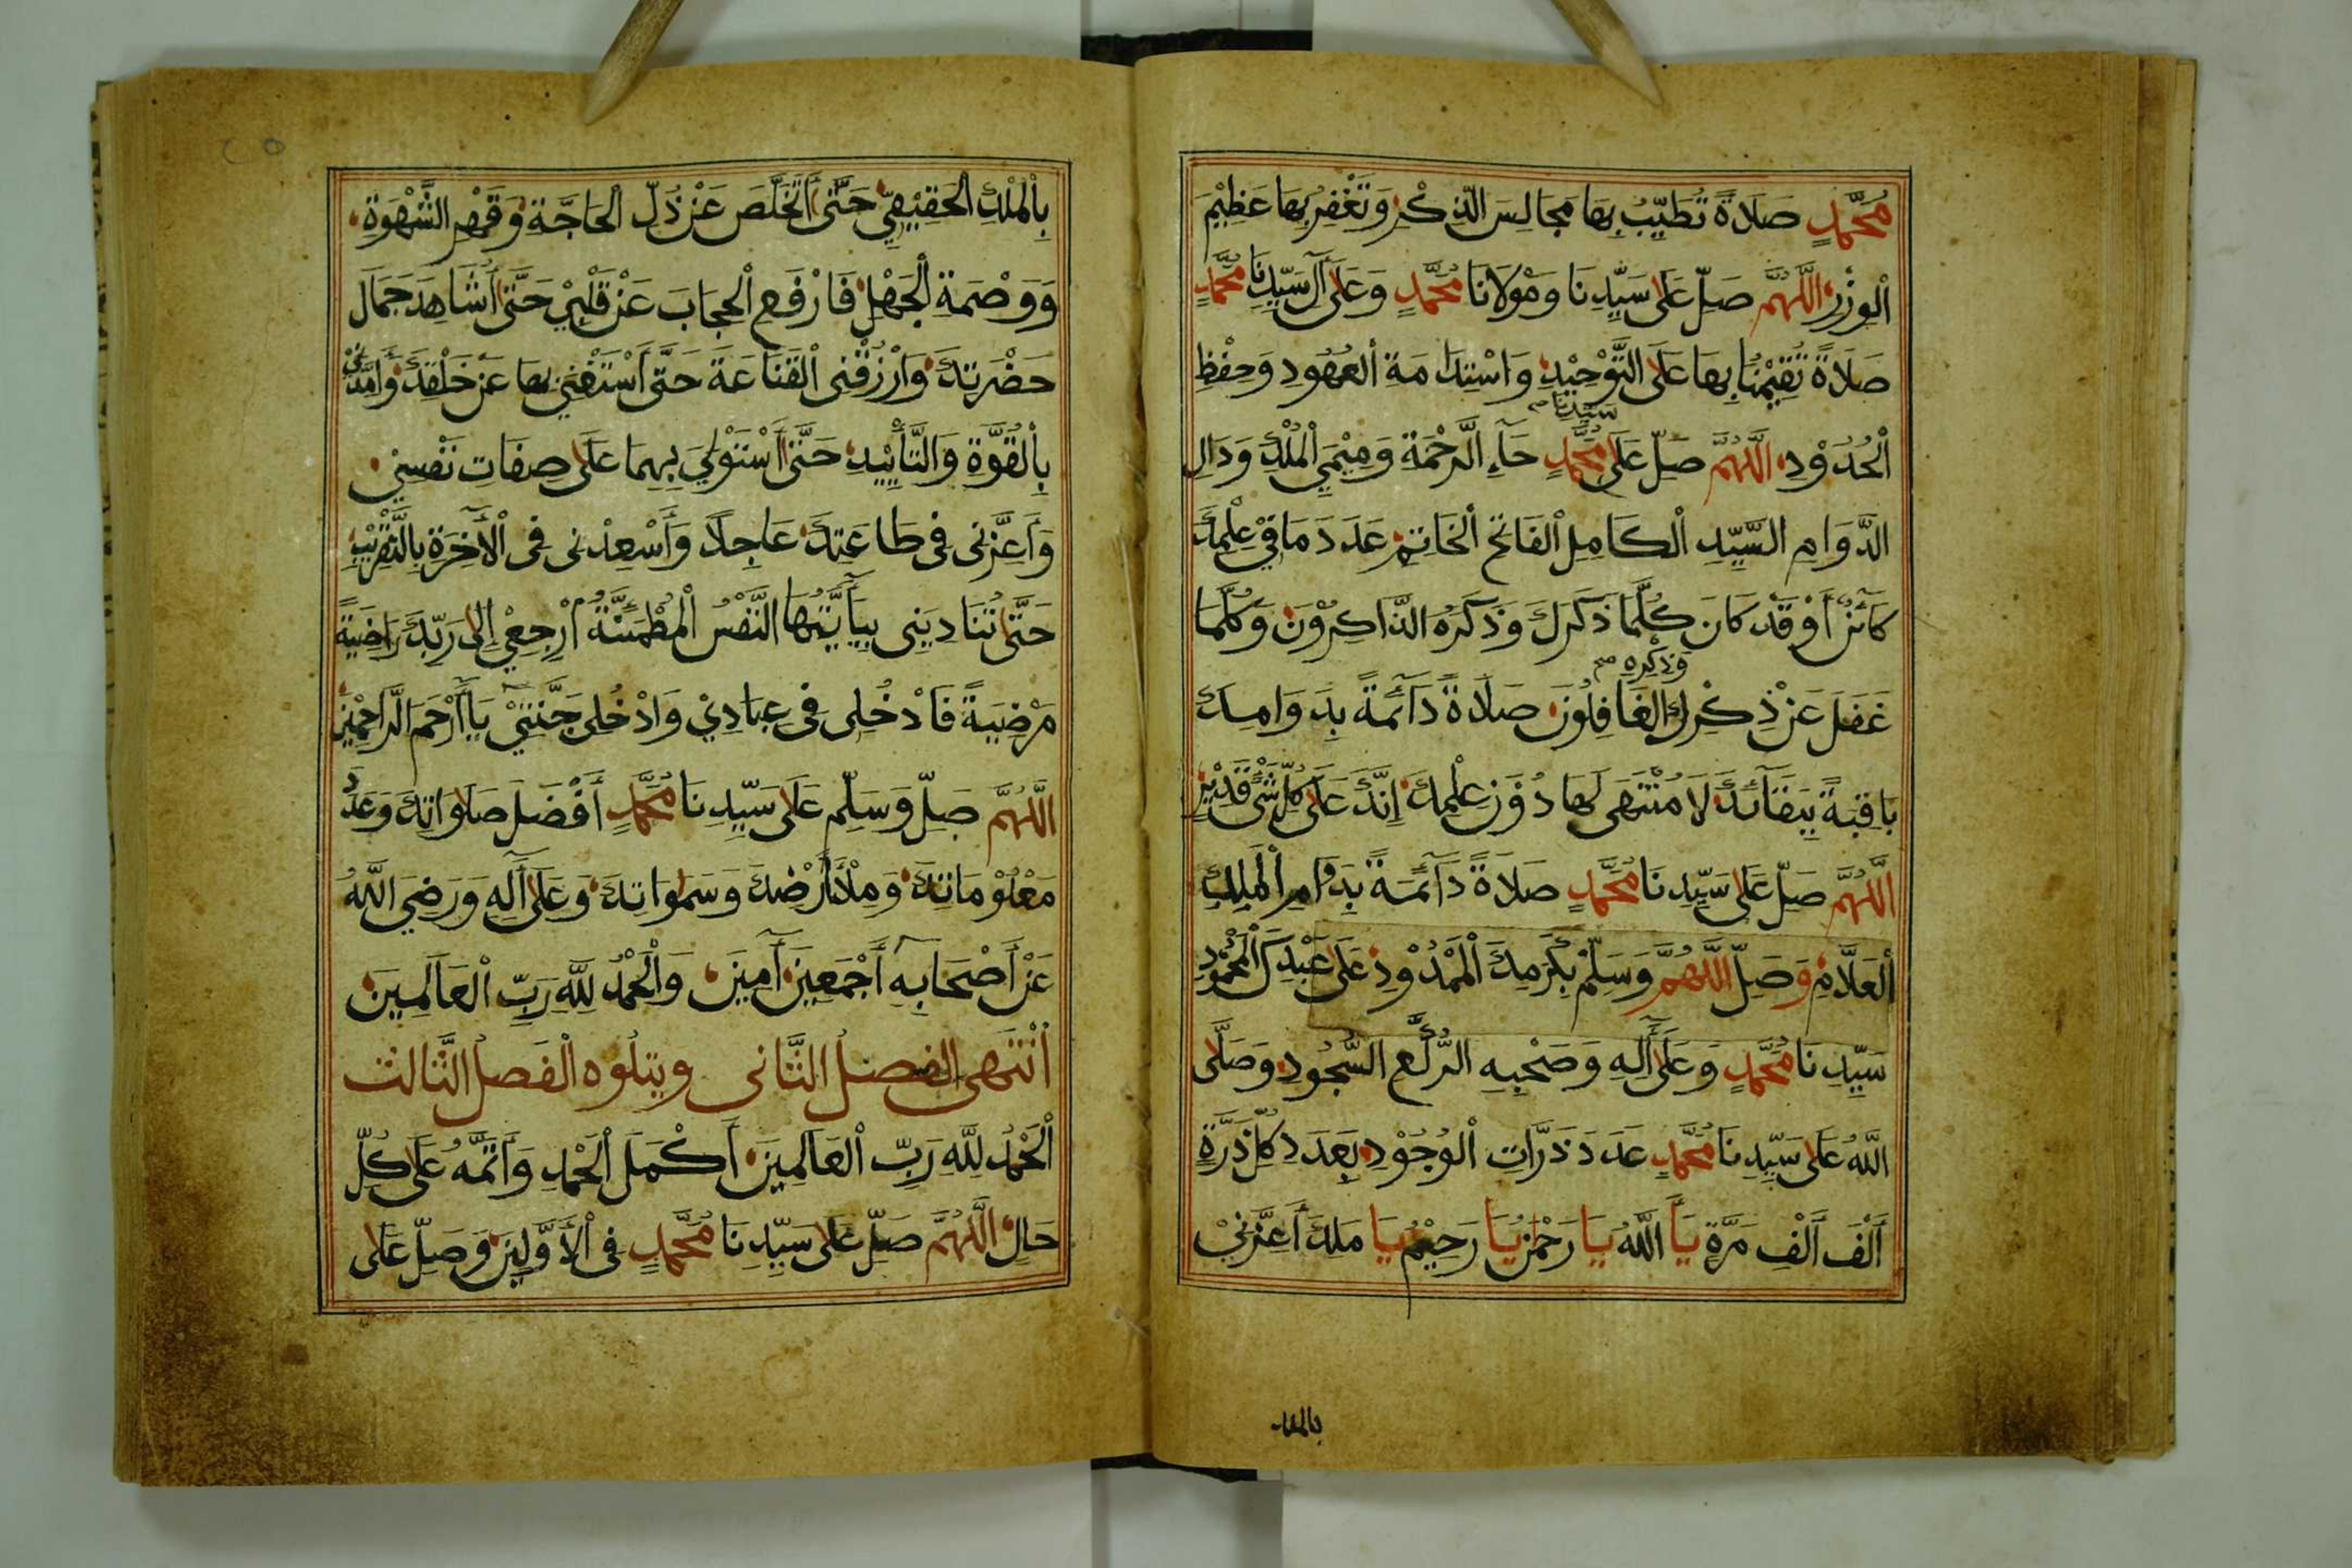 مُحَمَّدٍ صَلَاةً تُطَيِّبُ بِهَا مَجَالِسَ الذِّكْرِ وَتَغْفِرُ بِهَا عَظِيْمَ
اْلوِزْرِ اللَّهُمَّ صَلِّ عَلَى سَيِّدِنَا وَمَوْلَانَا مُحَمَّدٍ وَعَلَى آلِ سَيِّدِنَا مُحَمَّدٍ
صَلَاةً تُقِيْمُنَا بِهَا عَلَى التَّوْحِيْدِ وَاسْتِدَامَةِ اْلعُهُودِ وَحِفْظِ
سيدنا صح
اْلحُدُوْدِ اللَّهُمَّ صَلِّ عَلَى مُحَمَّدٍ حَآءِ الرَّحْمَةِ وَمِيْمَيِ اْلمُلْكِ وَدَالِ
الدَّوَامِ السَّيِّدِ اْلكَامِلِ اْلفَاتِحِ اْلخَاتِمِ عَدَدَ مَا فِيْ عِلْمِكَ
كَآئِنٌ أَوْ قَدْ كَانَ كُلَّمَا ذَكَرَكَ وَذَكَرَهُ الذَّاكِرُوْنَ وَكُلَّمَا
وذكره صح
غَفَلَ عَنْ ذِكْرِكَ الْغَافِلُونَ صَلَاةً دَآئِمَةً بِدَوَامِكَ
بَاقِيَةً بِبَقَآئِكَ لَا مُنْتَهَى لَهَا دُوْنَ عِلْمِكَ إِنَّكَ عَلَى كُلِّ شَيْءٍ قَدِيْرٌ
اللَّهُمَّ صَلِّ عَلَى سَيِّدِنَا مُحَمَّدٍ صَلَاةً دَآئِمَةً بِدَوَامِ اْلمَلِكِ
اْلعَلَّامِ وَصَلِّ اللَّهُمَّ وَسَلِّمْ بِكَرَمِكَ اْلمَمْدُوْدِ عَلَى عَبْدِكَ اْلمَحْمُوْدِ
سَيِّدِنَا مُحَمَّدٍ وَعَلَى آلِهِ وَصَحْبِهِ الرُّكَّعِ السُّجُودِ وَصَلَّى
اللَّهُ عَلَى سَيِّدِنَا مُحَمَّدٍ عَدَدَ ذَرَّاتِ اْلوُجُوْدِ بِعَدَدِ كُلِّ ذَرَّةٍ
أَلْفَ أَلْفِ مَرَّةٍ يَا اللَّهُ يَا رَحْمٰنُ يَا رَحِيْمُ يَا مَلِكُ أَعِزَّنِيْ
بالملك
بِاْلمُلْكِ اْلحَقِيْقِيِّ حَتَّى أَتَخَلَّصَ عَنْ ذُلِّ اْلحَاجَةِ وَقَهْرِ الشَّهْوَةِ
وَوَصْمَةِ اْلجَهْلِ فَارْفَعِ اْلحِجَابَ عَنْ قَلْبِيْ حَتَّى أُشَاهِدَ جَمَالَ
حَضْرَتِكَ وَارْزُقْنِى اْلقَنَاعَةَ حَتَّى أَسْتَغْنِيَ بِهَا عَنْ خَلْقِكَ وَأَمِدَّنِيْ
بِاْلقُوَّةِ وَالتَّأْيِيْدِ حَتَّى أَسْتَوْلِيَ بِهِمَا عَلَى صِفَاتِ نَفْسِيْ
وَأَعِزَّنِى فِى طَاعَتِكَ عَاجِلًا وَأَسْعِدْنِى فِى اْلآخِرَةِ بِالتَّقْرِيْبِ
حَتَّى تُنَادِيَنِى بِيَآأَيَّتُهَا النَّفْسُ اْلمُطْمَئِنَّةُ اْرْجِعِيْ إِلَى رَبِّكَ رَاضِيَةً
مَرْضِيَةً فَادْخُلِى فِى عِبَادِيْ وَادْخُلِى جَنَّتِيْ يَا أَرْحَمَ الرَّاحِمِيْنَ
اللَّهُمَّ صَلِّ وَسَلِّمْ عَلَى سَيِّدِنَا مُحَمَّدٍ أَفْضَلَ صَلَوَاتِكَ وَعَدَدَ
مَعْلُوْمَاتِكَ وَمِلْأَ أَرْضِكَ وَسَمٰوَاتِكَ وَعَلَى آلِهِ وَرَضِيَ اللَّهُ
عَنْ أَصْحَابِهِ أَجْمَعِيْنَ آمِيْنَ وَاْلحَمْدُ لِلَّهِ رَبِّ اْلعَالَمِيْنَ
اْنْتَهَى الفصل الثَّانى ويتلوه اْلفَصل الثَّالث
اْلحَمْدُ لِلَّهِ رَبِّ اْلعَالَمِيْنَ أَكْمَلَ اْلحَمْدِ وَأَتَمَّهُ عَلَى كُلِّ
حَالٍ اللَّهُمَّ صَلِّ عَلَى سَيِّدِنَا مُحَمَّدٍ فِى اْلأَوَّلِيْنَ وَصَلِّ عَلَى